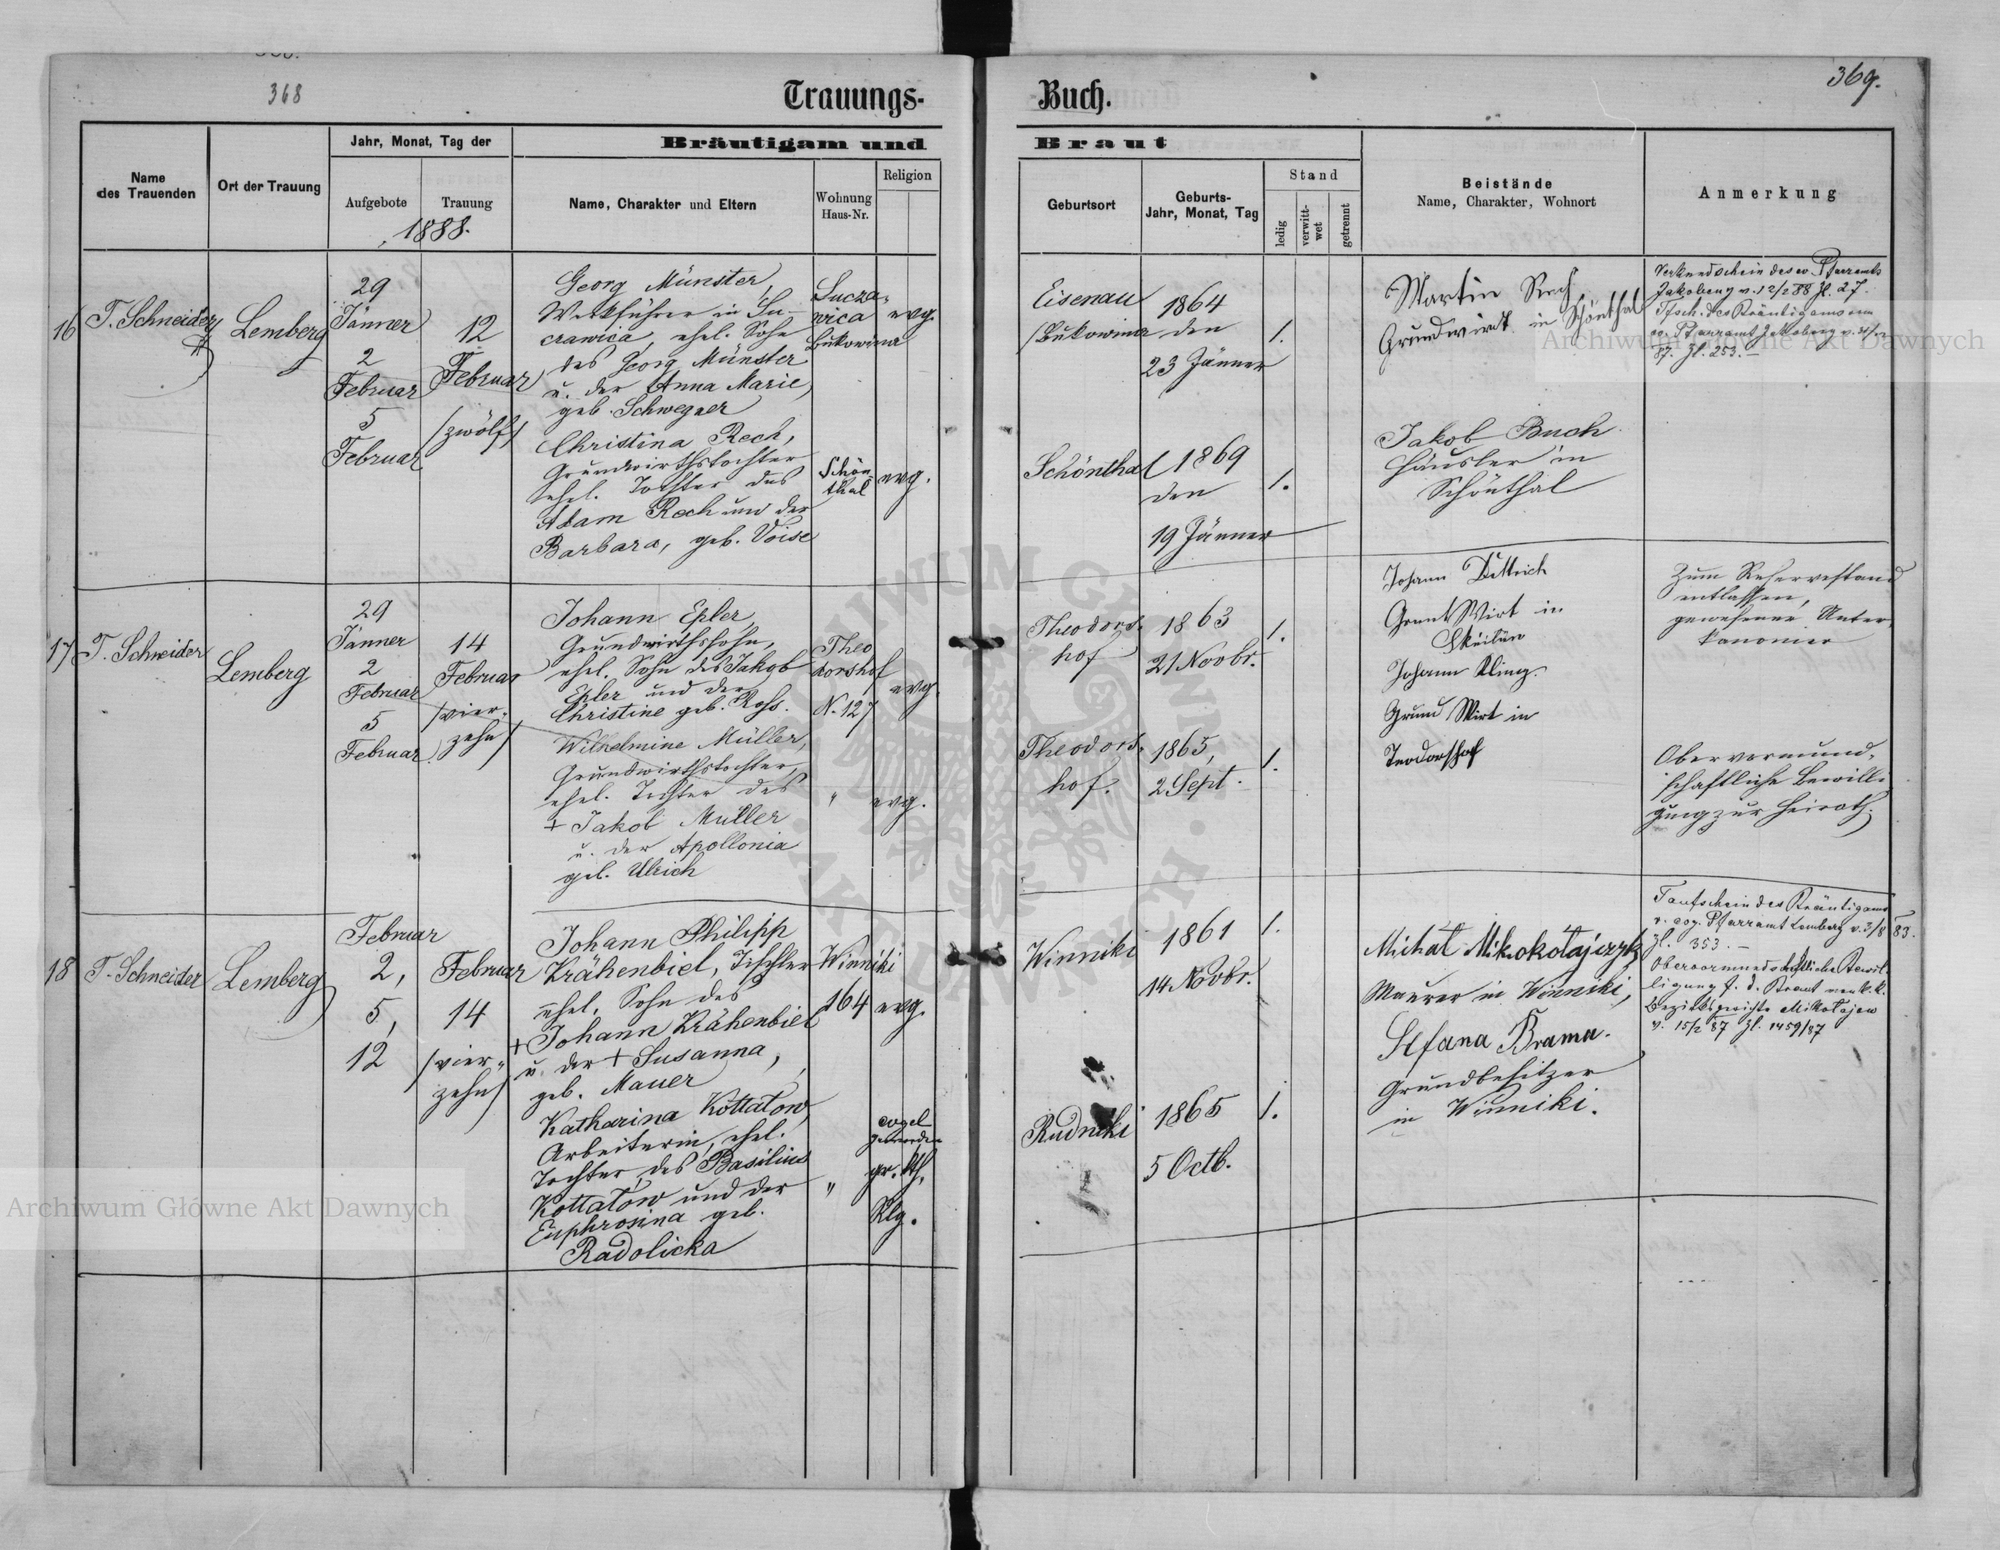 368
Trauungs-
Buch.
369.
Name
des Trauenden
Ort der Trauung
Jahr, Monat, Tag der
Aufgebote
Trauung
1888.
Bräutigam und
Braut
Name, Charakter und Eltern
Wohnung
Haus-Nr.
Religion
Geburtsort
Geburts-
Jahr, Monat, Tag
Stand
ledig
verwitt-
wet
getrennt
Beistände
Name, Charakter, Wohnort
Anmerkung
16
T. Schneider
Lemberg
29
Jänner
2
Februar
5
Februar
12
Februar
/zwölf/
Georg Münster,
Werkführer in Su-
czawica, ehel. Sohn
des Georg Münster
u. der Anna Marie,
geb. Schwegner
Sucza-
wica
Bukowina
evg.
Eisenau
/Bukowina
1864
den
23 Jänner
1.
Martin Rech
Grundwirth in Schönthal
Verkundschein des ev. Pfarramts
Jakobeny v. 12/2 88 Zl. 27.
Tfsch. des Bräutigams vom
ev. Pfarramt Jakobeny v.
87. Zl. 253.–
Christina Rech,
Grundwirthstochter
ehel. Tochter des
Adam Rech und der
Barbara, geb. Voise
Schön-
thal
evg.
Schönthal
1869
den
19 Jänner
1.
Jakob Buch
Häusler in
Schönthal
17
T. Schneider
Lemberg
29
Jänner
2
Februar
5
Februar
14
Februar
/vier-
zehn/
Johann Epler,
Grundwirthssohn,
ehel. Sohn des Jakob
Epler und der
Christine geb. Rofs.
Theo
dorshof
N. 127
evg.
Theodors-
hof
1863
21 Novbr.
1.
Johann Dittrich
Grunt Wirt in
Johann Kling.
Grund Wirt in
Teodorshof
Zum Reservestand
entlassen,
gewesener Unter-
kanonier
Wilhelmine Müller,
Grundwirthstochter,
ehel. Tochter des
+ Jakob Müller
u. der Apollonia
geb. Ulrich
"
evg.
Theodors-
hof.
1865,
2 Sept.
1.
Obervormund-
schaftliche Bewilli-
gung zur Heirath.
18
T. Schneider
Lemberg
Februar
2,
5,
12
Februar
14
/vier-
zehn/
Johann Philipp
Krähenbiel, Tischler
ehel. Sohn des
+ Johann Krähenbiel
u. der + Susanna,
geb. Mauer
Winniki
164
evg.
Winniki
1861
14 Novbr.
1.
Michał Mikołajczyk
Maurer in Winniki,
Stefana Brama.
Grundbesitzer
in Winniki.
Taufschein des Bräutigams
v. evg. Pfarramt Lemberg v. 3/8 83.
Zl. 353.–
Obervormundschaftliche Bewil-
ligung f. d. Braut vom k. k.
Bezirksgerichte Mikołajow
v. 15/2 87 Zl. 1459/87
Katharina Kottatow,
Arbeiterin, ehel.
Tochter des Basilius
Kottatow und der
Euphrosina geb.
Radolicka
"
evgel
geworden
gr. kth.
Rlg.
Rudniki
1865
5 Octb.
1.
Archiwum Główne Akt Dawnych
Archiwum Główne Akt Dawnych